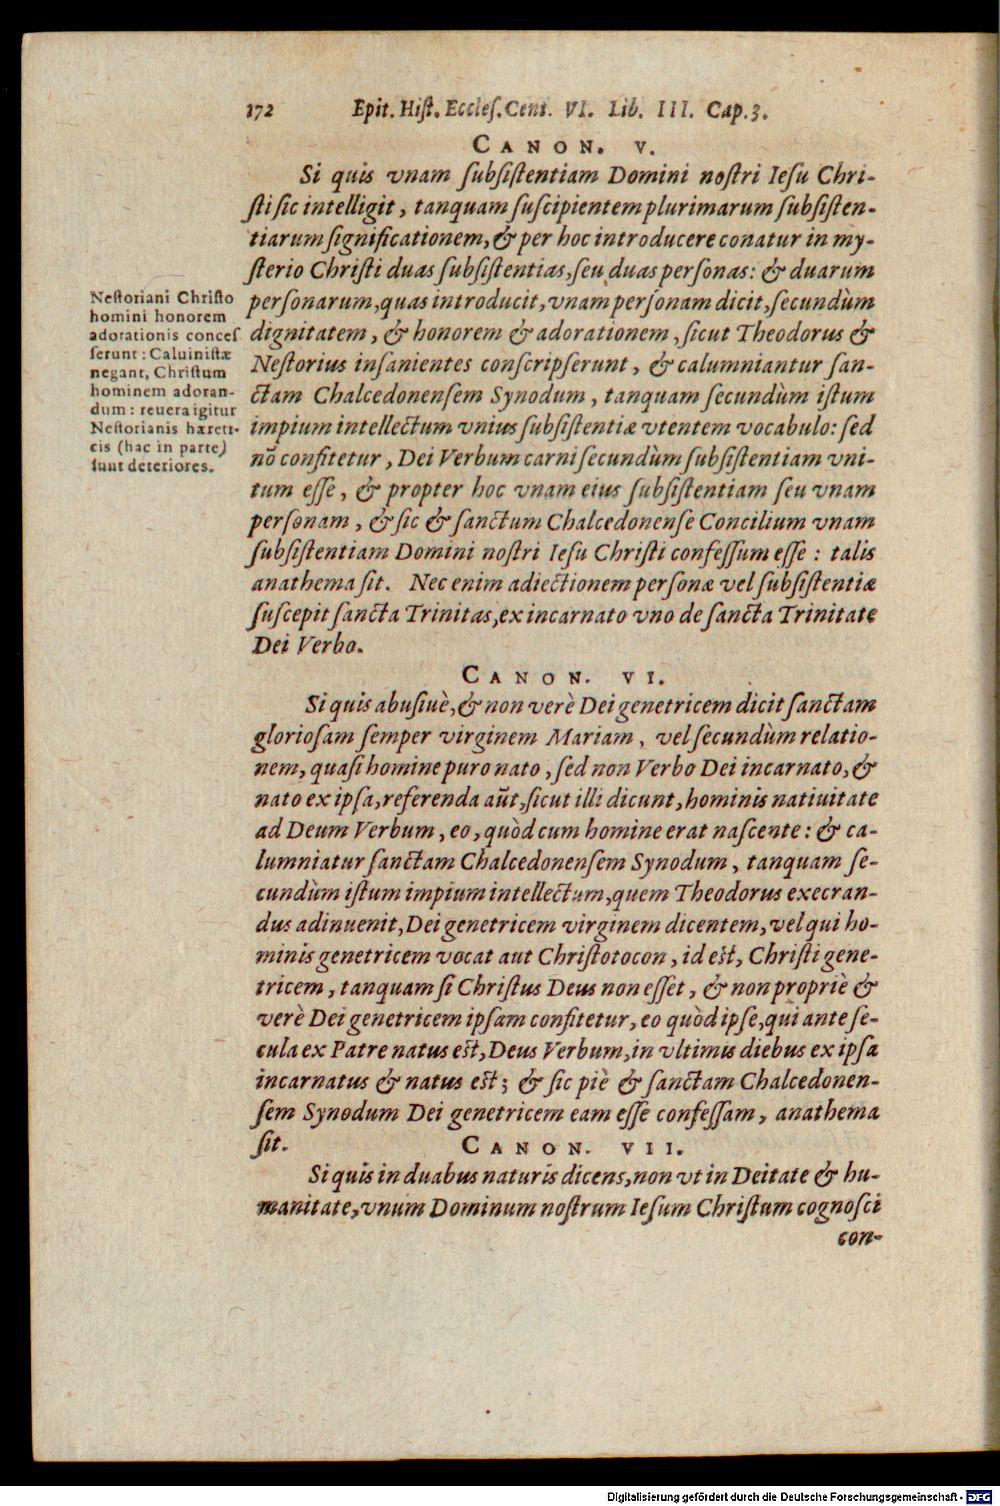 172 Epit. Hiſt. Eccleſ. Cent. VI. Lib. III. Cap. 3.
CANON. V.
Si quis vnam ſubſiſtentiam Domini noſtri Ieſu Chri-
ſti ſic intelligit, tanquam ſuſcipientem plurimarum ſubſiſten-
tiarum ſignificationem, & per hoc introducere conatur in my-
ſterio Chriſti duas ſubſiſtentias, ſeu duas perſonas: & duarum
perſonarum, quas introducit, vnam perſonam dicit, ſecundùm
dignitatem, & honorem & adorationem, ſicut Theodorus &
Neſtorius inſanientes conſcripſerunt, & calumniantur ſan-
ctam Chalcedonenſem Synodum, tanquam ſecundùm iſtum
impium intellectum vnius ſubſiſtentiæ vtentem vocabulo: ſed
nō confitetur, Dei Verbum carni ſecundùm ſubſiſtentiam vni-
tum eſſe, & propter hoc vnam eius ſubſiſtentiam ſeu vnam
perſonam, & ſic & ſanctum Chalcedonenſe Concilium vnam
ſubſiſtentiam Domini noſtri Ieſu Chriſti confeſſum eſſe: talis
anathema ſit. Nec enim adiectionem perſonæ vel ſubſiſtentiæ
ſuſcepit ſancta Trinitas, ex incarnato vno de ſancta Trinitate
Dei Verbo.
Neſtoriani Chriſto
homini honorem
adorationis conceſ
ſerunt: Caluiniſtæ
negant, Chriſtum
hominem adoran-
dum: reuera igitur
Neſtorianis hæreti-
cis (hac in parte)
ſunt deteriores.
CANON. VI.
Si quis abuſiuè, & non verè Dei genetricem dicit ſanctam
glorioſam ſemper virginem Mariam, vel ſecundùm relatio-
nem, quaſi homine puro nato, ſed non Verbo Dei incarnato, &
nato ex ipſa, referenda aūt, ſicut illi dicunt, hominis natiuitate
ad Deum Verbum, eo, quòd cum homine erat naſcente: & ca-
lumniatur ſanctam Chalcedonenſem Synodum, tanquam ſe-
cundùm iſtum impium intellectum, quem Theodorus execran-
dus adinuenit, Dei genetricem virginem dicentem, vel qui ho-
minis genetricem vocat aut Chriſtotocon, id eſt, Chriſti gene-
tricem, tanquam ſi Chriſtus Deus non eſſet, & non propriè &
verè Dei genetricem ipſam confitetur, eo quòd ipſe, qui ante ſe-
cula ex Patre natus eſt, Deus Verbum, in vltimis diebus ex ipſa
incarnatus & natus eſt; & ſic piè & ſanctam Chalcedonen-
ſem Synodum Dei genetricem eam eſſe confeſſam, anathema
ſit. CANON. VII.
Si quis in duabus naturis dicens, non vt in Deitate & hu-
manitate, vnum Dominum noſtrum Ieſum Chriſtum cognoſci
con-
Digitalisierung gefördert durch die Deutsche Forschungsgemeinschaft - DFG